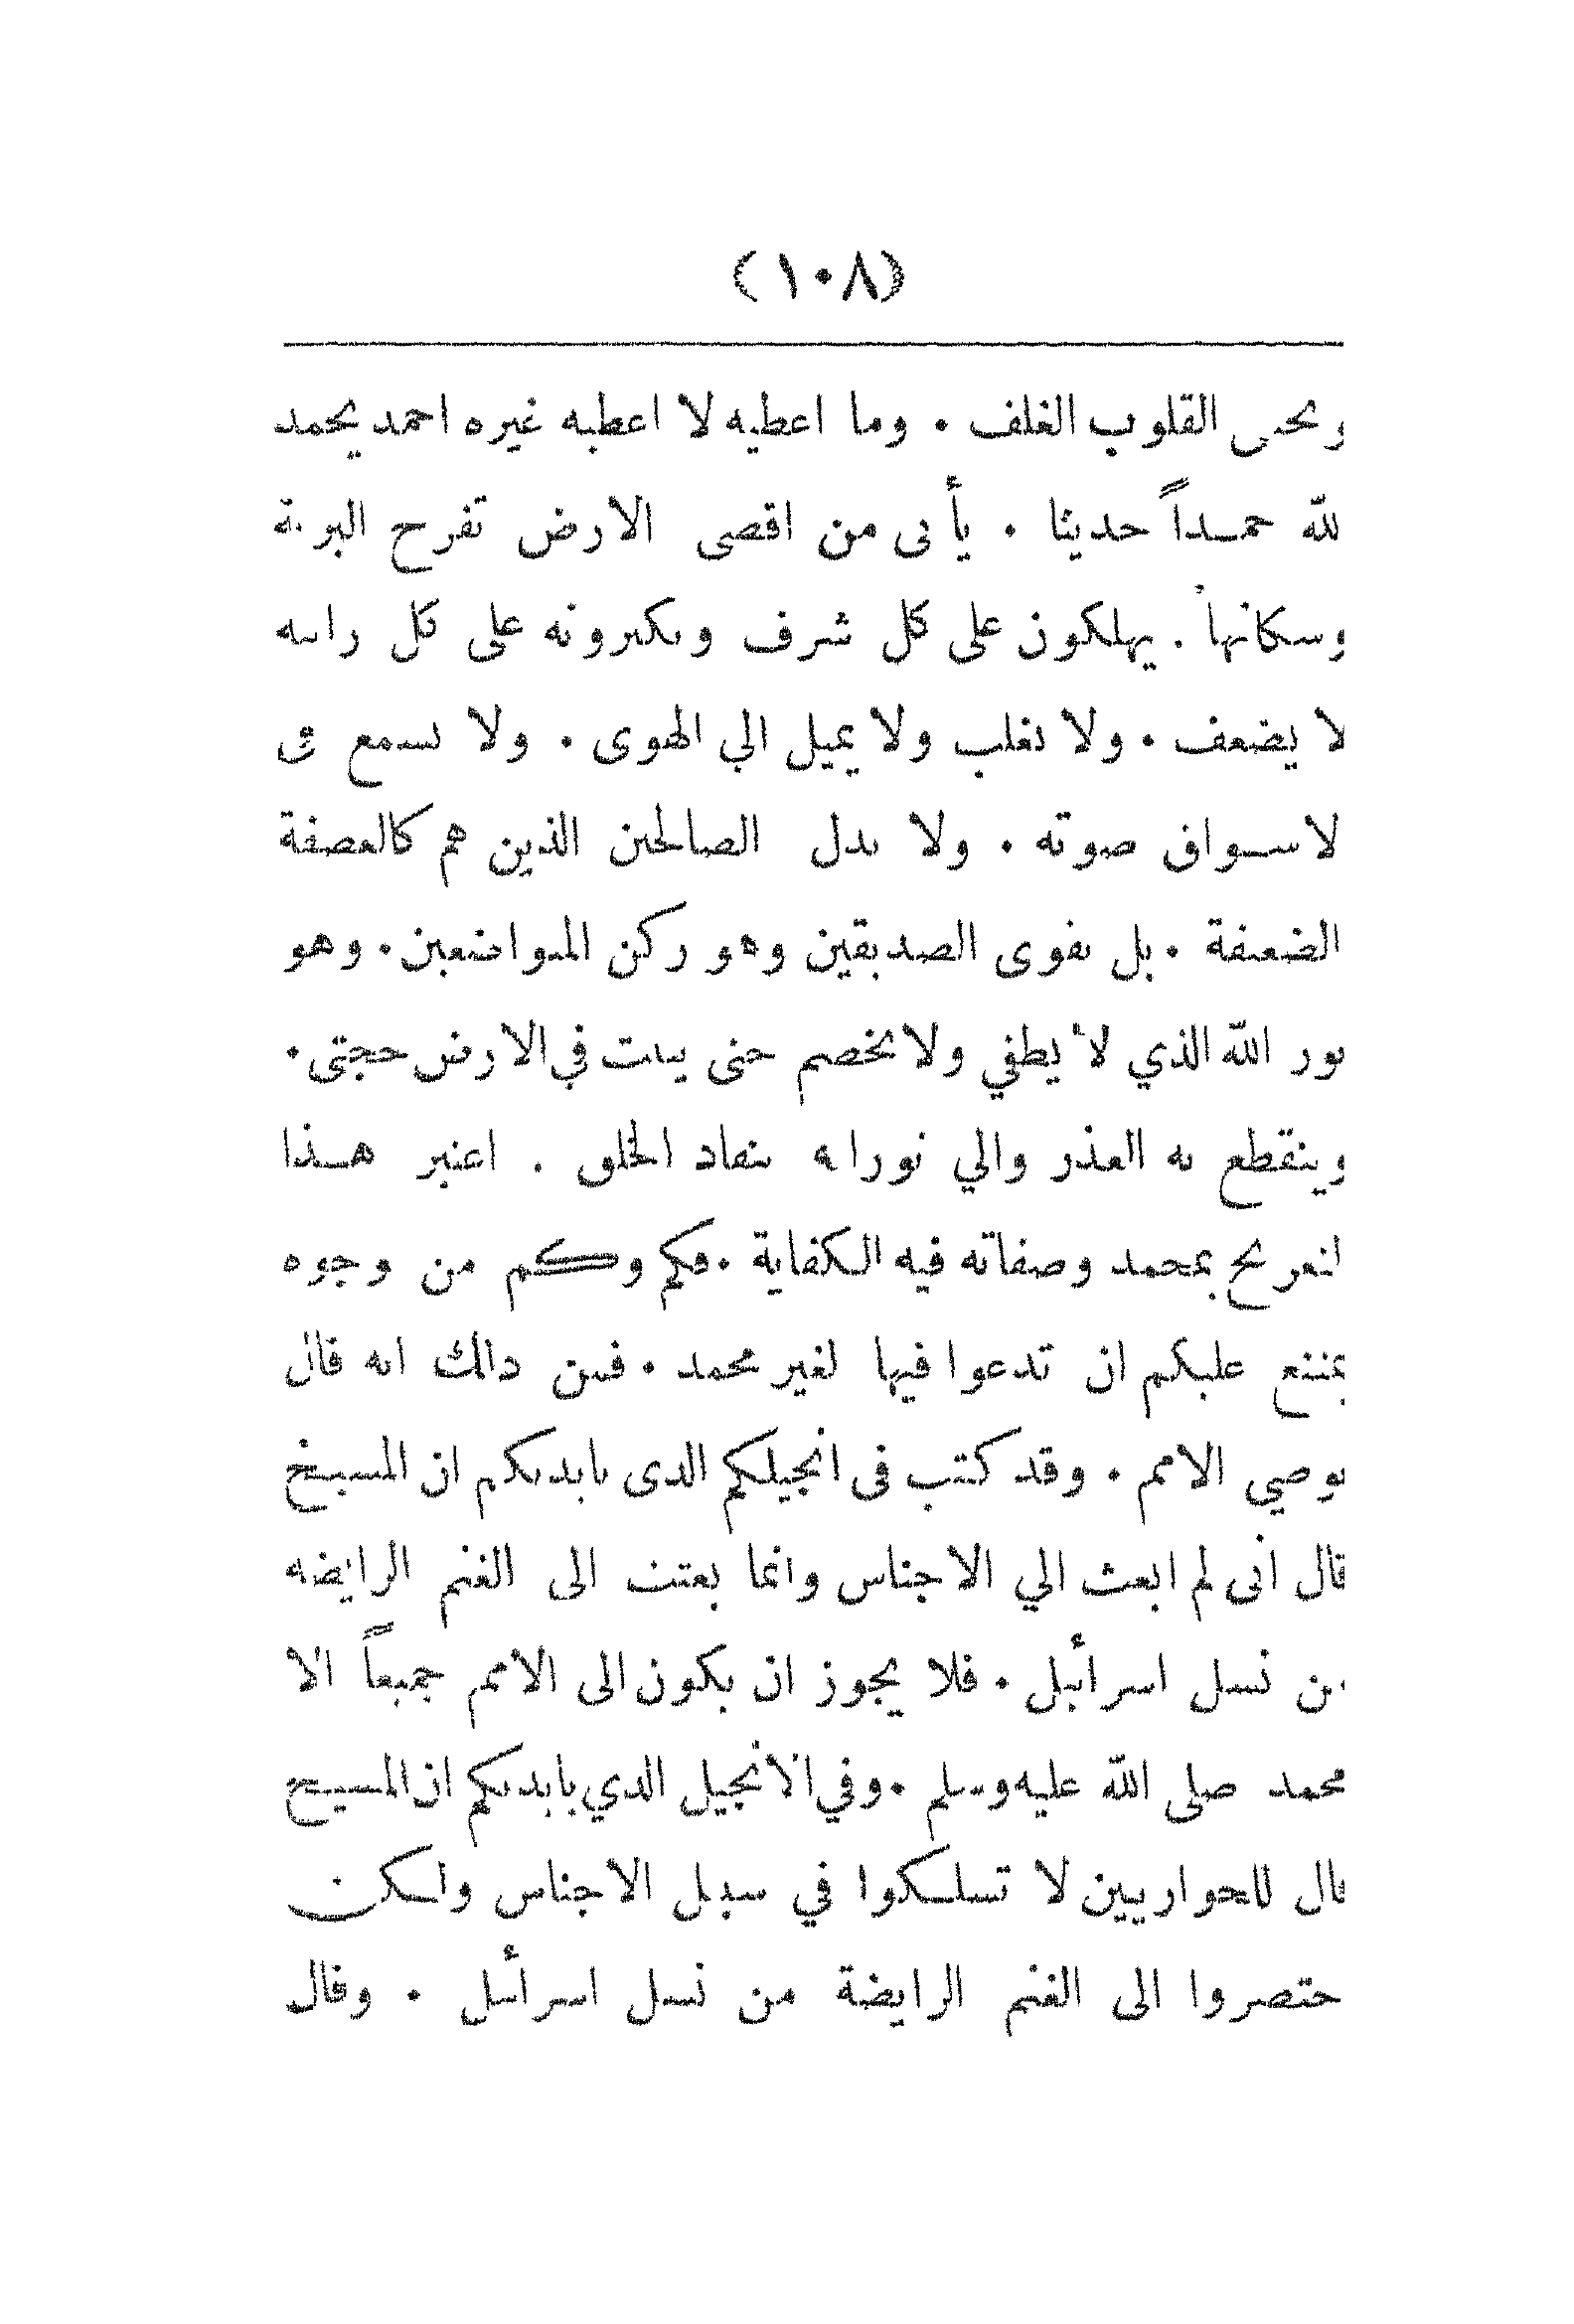 (١٠٨)
ويحيى القلوب الغلف . وما اعطيه لا اعطيه غيره احمد يحمد
لله حمـداً حديثا . يأتى من اقصى الارض تفرح البرية
وسكانها . يهلكون على كل شرف ويكبرونه على كل رابيه
لا يضعف . ولا يغلب ولا يميل الي الهوى . ولا يسمع فى
لاسـواق صوته . ولا يذل الصالحين الذين هم كالقصفة
الضعيفة . بل يقوى الصديقين وهو ركن المتواضعين . وهو
نور الله الذي لا يطفي ولا يخصم حتى يثبت في الارض حجتى .
وينقطع به العذر والي توراته ينقاد الخلق . اعتبر هـذا
لتصريح بمحمد وصفاته فيه الـكفاية . فكم وكم من وجوه
يمتنع عليكم ان تدعوا فيها لغير محمد . فمن ذلك انه قال
يوصي الامم . وقد كتب فى انجيلكم الدى بايديكم ان المسيح
قال انى لم ابعث الي الاجناس وانما بعثت الى الغنم الرايضه
من نسل اسرائيل . فلا يجوز ان يكون الى الامم جميعاً الا
محمد صلى الله عليه وسلم . وفي الانجيل الدي بايديكم ان المسيح
قال للحواريين لا تسلـكوا في سبيل الاجناس ولـكن
ختصروا الى الغنم الرايضة من نسل اسرائيل . وقال